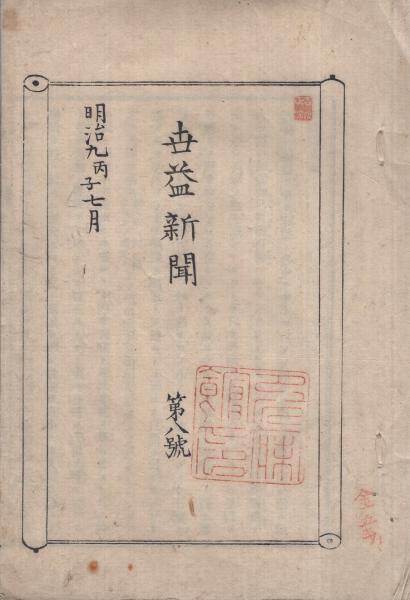 世益新聞
第八號
明治九丙子七月